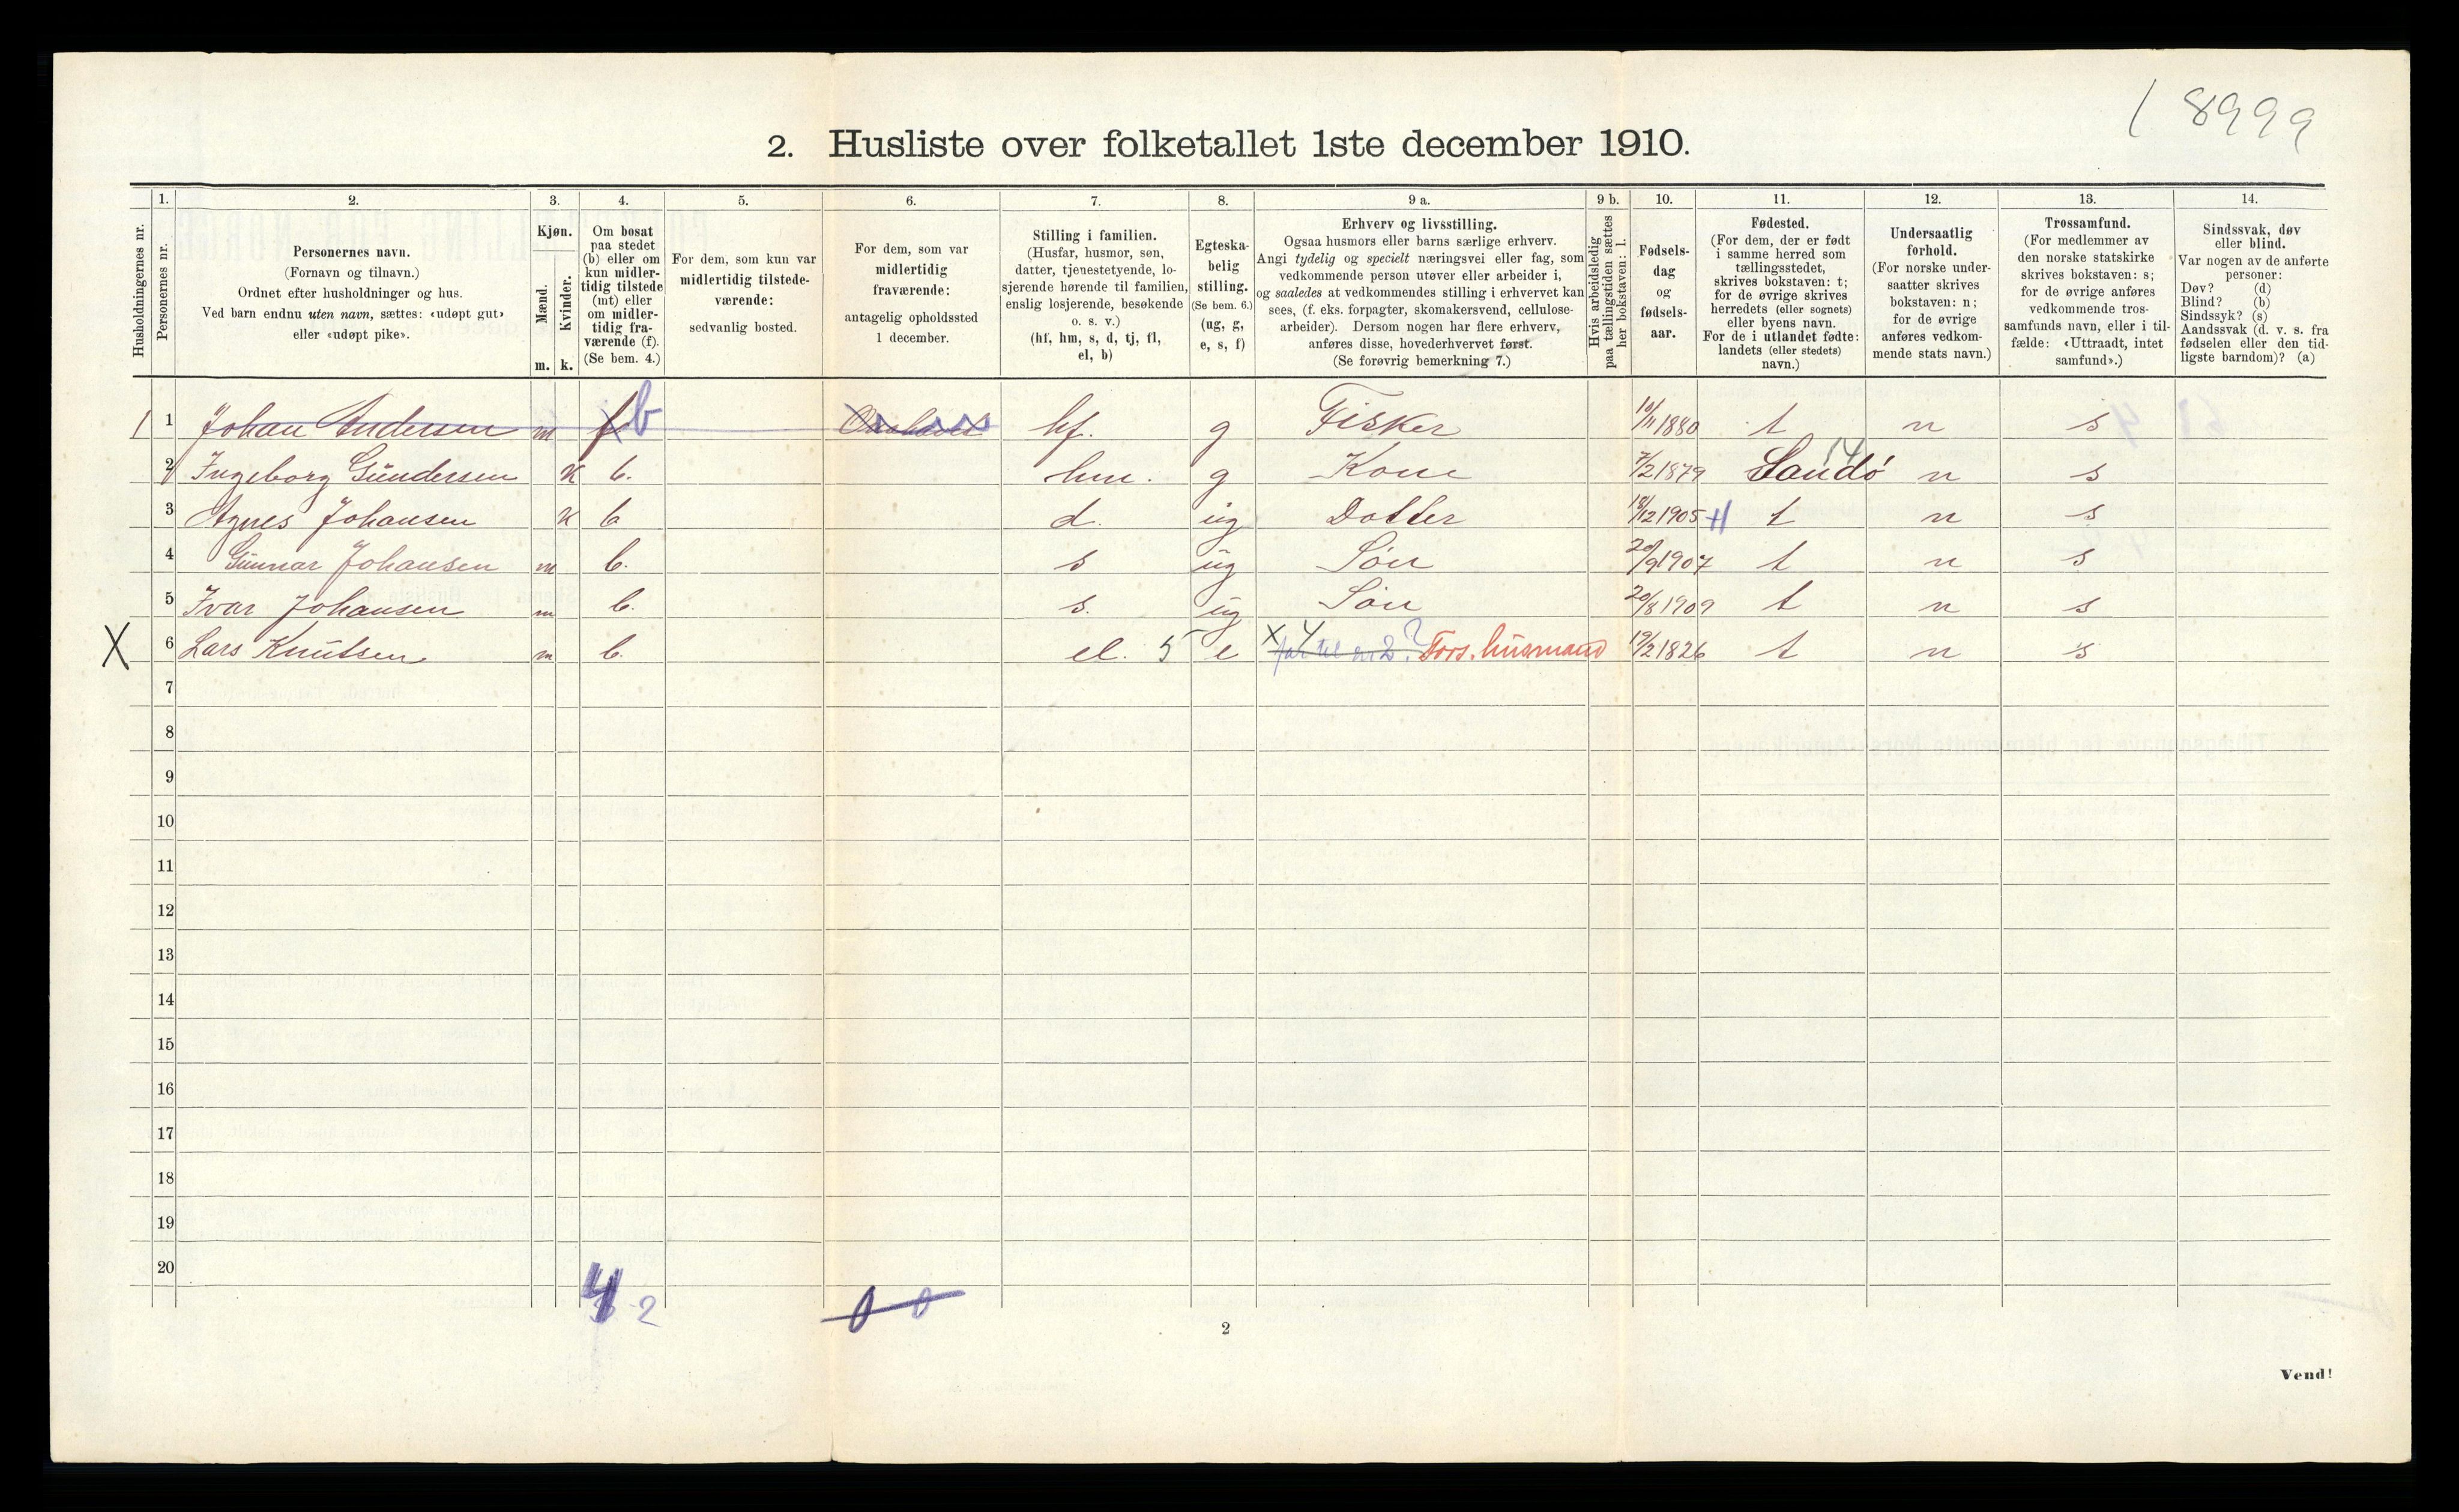 / 8999
2. Husliste over folketallet 1ste december 1910.
1. 2. 3. 4. 5. 6. 7. 8. 9 a. 9 b. 10. 11. 12. 13. 14.
Husholdningernes nr.
Personernes nr.
Personernes navn.
(Fornavn og tilnavn.)
Ordnet efter husholdninger og hus.
Ved barn endnu uten navn, sættes: «udøpt gut»
eller «udøpt pike».
Kjøn.
Mænd.
Kvinder.
m. k.
Om bosat
paa stedet
(b) eller om
kun midler-
tidig tilstede
(mt) eller
om midler-
tidig fra-
værende (f).
(Se bem. 4.)
For dem, som kun var
midlertidig tilstede-
værende:
sedvanlig bosted.
For dem, som var
midlertidig
fraværende:
antagelig opholdssted
1 december.
Stilling i familien.
(Husfar, husmor, søn,
datter, tjenestetyende, lo-
sjerende hørende til familien,
enslig losjerende, besøkende
o. s. v.)
(hf, hm, s, d, tj, fl,
el, b)
Egteska-
belig
stilling.
(Se bem. 6.)
(ug, g,
e, s, f)
Erhverv og livsstilling.
Ogsaa husmors eller barns særlige erhverv.
Angi tydelig og specielt næringsvei eller fag, som
vedkommende person utøver eller arbeider i,
og saaledes at vedkommendes stilling i erhvervet kan
sees, (f. eks. forpagter, skomakersvend, cellulose-
arbeider). Dersom nogen har flere erhverv,
anføres disse, hovederhvervet først.
(Se forøvrig bemerkning 7.)
Hvis arbeidsledig
paa tællingstiden sættes
her bokstaven: l.
Fødsels-
dag
og
fødsels-
aar.
Fødested.
(For dem, der er født
i samme herred som
tællingsstedet,
skrives bokstaven: t;
for de øvrige skrives
herredets (eller sognets)
eller byens navn.
For de i utlandet fødte:
landets (eller stedets)
navn.)
Undersaatlig
forhold.
(For norske under-
saatter skrives
bokstaven: n;
for de øvrige
anføres vedkom-
mende stats navn.)
Trossamfund.
(For medlemmer av
den norske statskirke
skrives bokstaven: s;
for de øvrige anføres
vedkommende tros-
samfunds navn, eller i til-
fælde: «Uttraadt, intet
samfund».)
Sindssvak, døv
eller blind.
Var nogen av de anførte
personer:
Døv? (d)
Blind? (b)
Sindssyk? (s)
Aandssvak (d. v. s. fra
fødselen eller den tid-
ligste barndom)? (a)
1 1 Johan Andersen m f b hf. g Fisker 10/11 1880 t n s
2 Ingeborg Gundersen K b. hm. g Kone 7/2 1879 Sandø 14 n s
3 Agnes Johansen K b d. ug Datter 18/12 1905 t n s
4 Gunnar Johansen m b. s ug Søn 20/9 1907 t n s
5 Ivar Johansen m b. s. ug Søn 20/8 1909 t n s
X 6 Lars Knutsen m b. el. 5 e x 4 far til nr 2? Fors. husmand 19/2 1826 t n s
7
8
9
10
11
12
13
14
15
16
17
18
19
20
4 2 0 0
2
Vend!